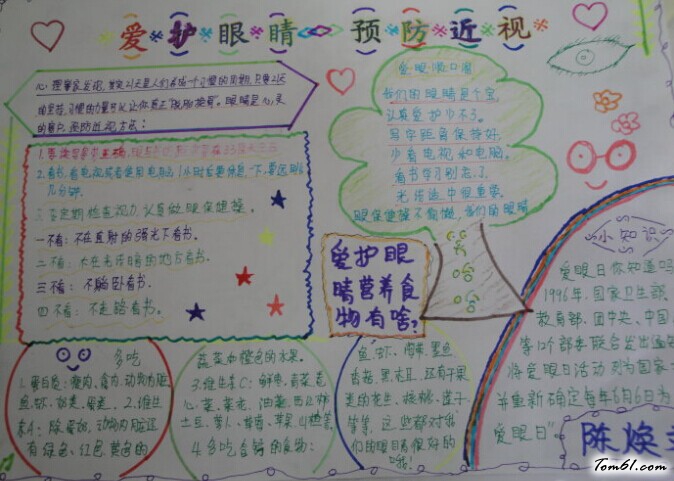 爱护眼睛 预防近视
心理专家发现,
眼睛是心灵
的窗户,预防近视方法:
2.看书、看电视或者使用电脑1小时后要休息一下,要远眺
几分钟。
3.要定期检查视力,认真做眼保健操。
一不看:不在直射的强光下看书。
二不看:不在光线暗的地方看书。
三不看:不躺卧看书。
四不看:不走路看书。
爱眼顺口溜
我们的眼睛是个宝,
认真爱护少不了。
写字距离保持好,
少看电视和电脑。
看书学习别走了,
光线适中很重要。
眼保健操不偷懒,我们的眼睛
爱护眼
睛营养食
物有啥?
多吃
1.蛋白质:瘦肉、禽肉、动物内脏、
鱼、虾、奶类、蛋类。2.维生
素A:
有绿色、红色、黄色的
蔬菜和橙色的水果。
3.维生素C:鲜枣、
菜、菜花、油菜、西红柿、
土豆、萝卜、柑橘、苹果。
4.多吃含铬的食物:
鱼、虾、肉类、黑鱼、
香菇、黑木耳,还有干果
类的花生、核桃、莲子
等等,这些都对我
们的眼睛有很好的
哦!
小知识
爱眼日你知道吗
1996年,国家卫生部、
教育部、团中央、中国
等12个部委联合发出通知
将爱眼日活动列为国家
并重新确定每年6月6日为
爱眼日"
陈焕
Tom61.com